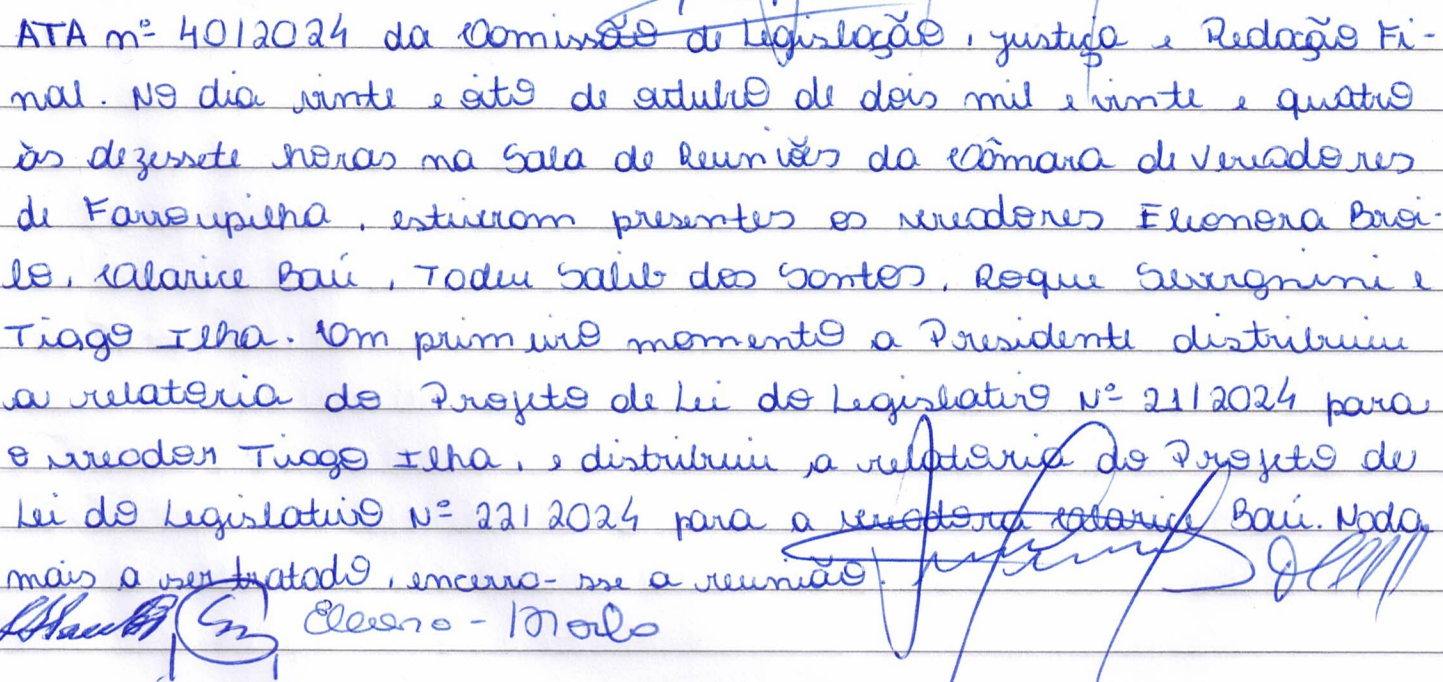 ATA nº 40/2024 da Comissão de Legislação, justiça e Redação Fi-
nal. No dia vinte e oito de outubro de dois mil e vinte e quatro
às dezessete horas na Sala de Reuniões da Câmara de Vereadores
de Farroupilha, estiveram presentes os vereadores Eleonora Broi-
lo, Calarice Baú, Tadeu Salib dos Santos, Roque Severgnini e
Tiago Ilha. Em primeiro momento a Presidente distribuiu
a relatoria do Projeto de Lei do Legislativo Nº 21/2024 para
o vereador Tiago Ilha, e distribuiu a relatoria do Projeto de
Lei do Legislativo Nº 22/2024 para a vereadora Calarice Baú. Nada
mais a ser tratado, encerra-sse a reunião.